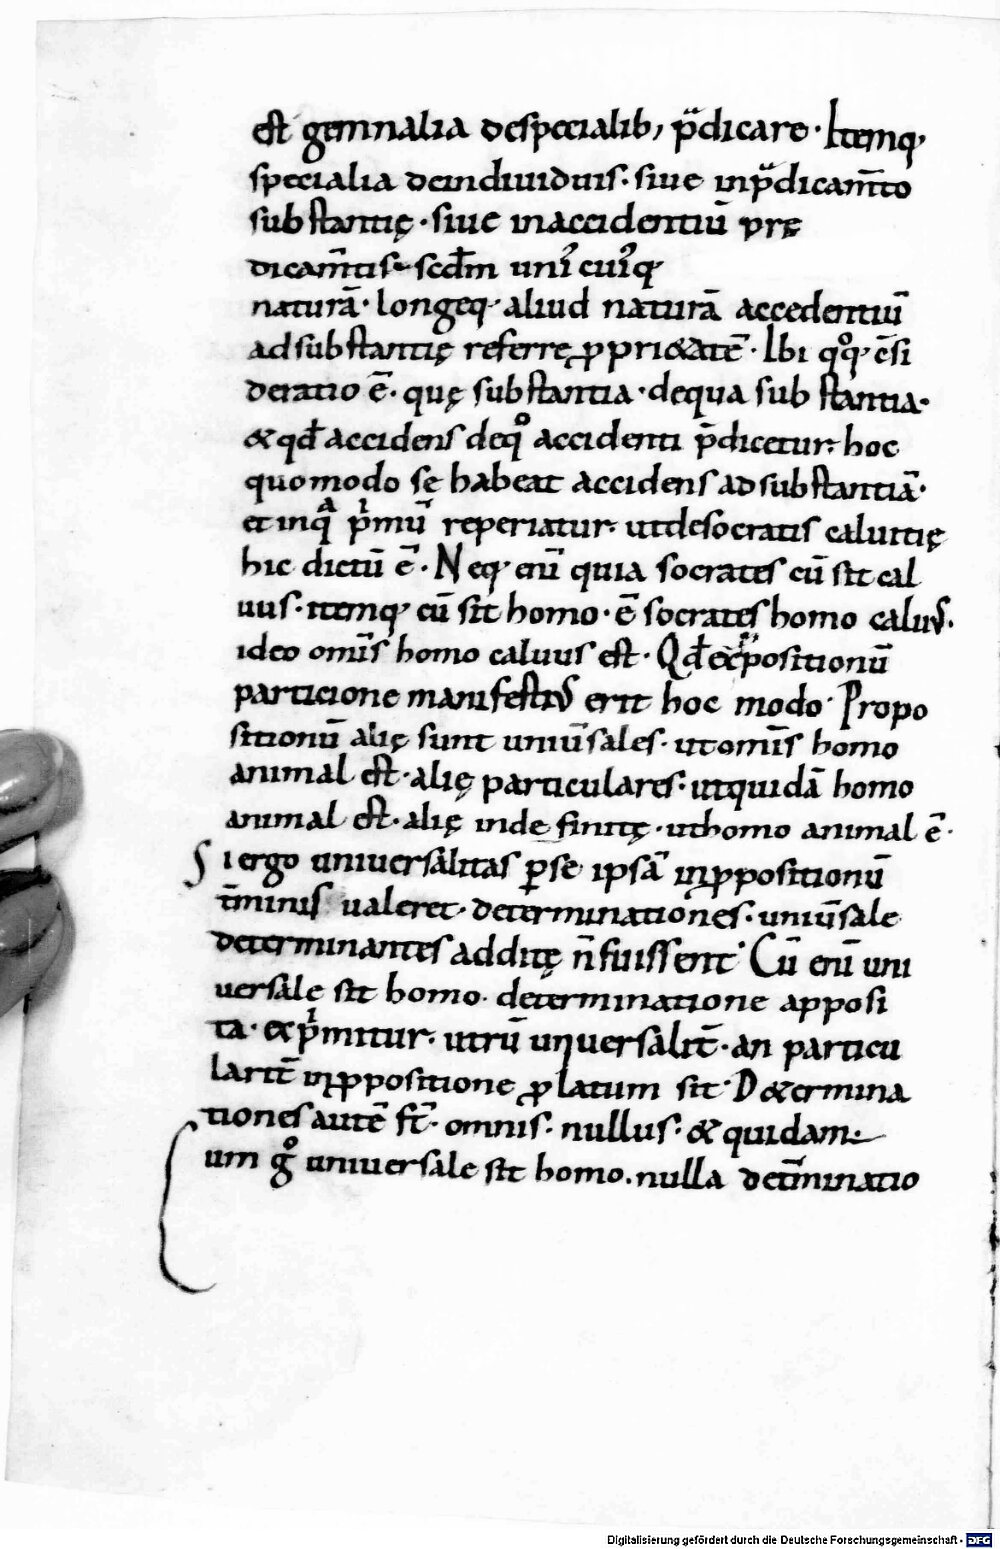 est genınalia despecialib; p̄dicare. Itemq;
specialia deindiuiduis. siue inp̄dicam̄to
substantię. siue inaccidentiū prę
dicam̄tis scd̄m uni cuiq;
naturā. longeq; aliud naturā accedentiū
adsubstantię referre ꝓpri&atē. Ibi qͦq; c̄si
deratio ē. quę substantia. dequa substantia.
& qđ accidens deqͦ accidenti p̄dicetur. hoc
quomodo se habeat accidens adsubstantiā.
et inqͣ pⁱmū reperiatur. utdesocratis caluitię
hic dictū ē. Neq; enī quia socrates cū sit cal
uus. itemq; cū sit homo. ē socrates homo caluꝰ.
ideo omīs homo caluus est. Qđ exp̄positionū
particione manifestiꝰ erit hoc modo. Propo
sitionū alię sunt uniūsales. utomīs homo
animal est. alię particulares. utquidā homo
animal est. alię indefinitę. uthomo animal ē.
Si ergo uniuersalitas ꝑse ipsā inꝓpositionū
t̄minis ualeret. determinationes. uniūsale
determinantes additę n̄ fuissent. Cū enī uni
uersale sit homo. determinatione apposi
ta. expⁱmitur. utrū uniuersalit̄. an particu
larit̄ inꝓpositione ꝓlatum sit. D&ermina
tiones autē st̄. omnis. nullus. & quidam.
Cum gͦ uniuersale sit homo. nulla det̄minatio
Digitalisierung gefördert durch die Deutsche Forschungsgemeinschaft - DFG